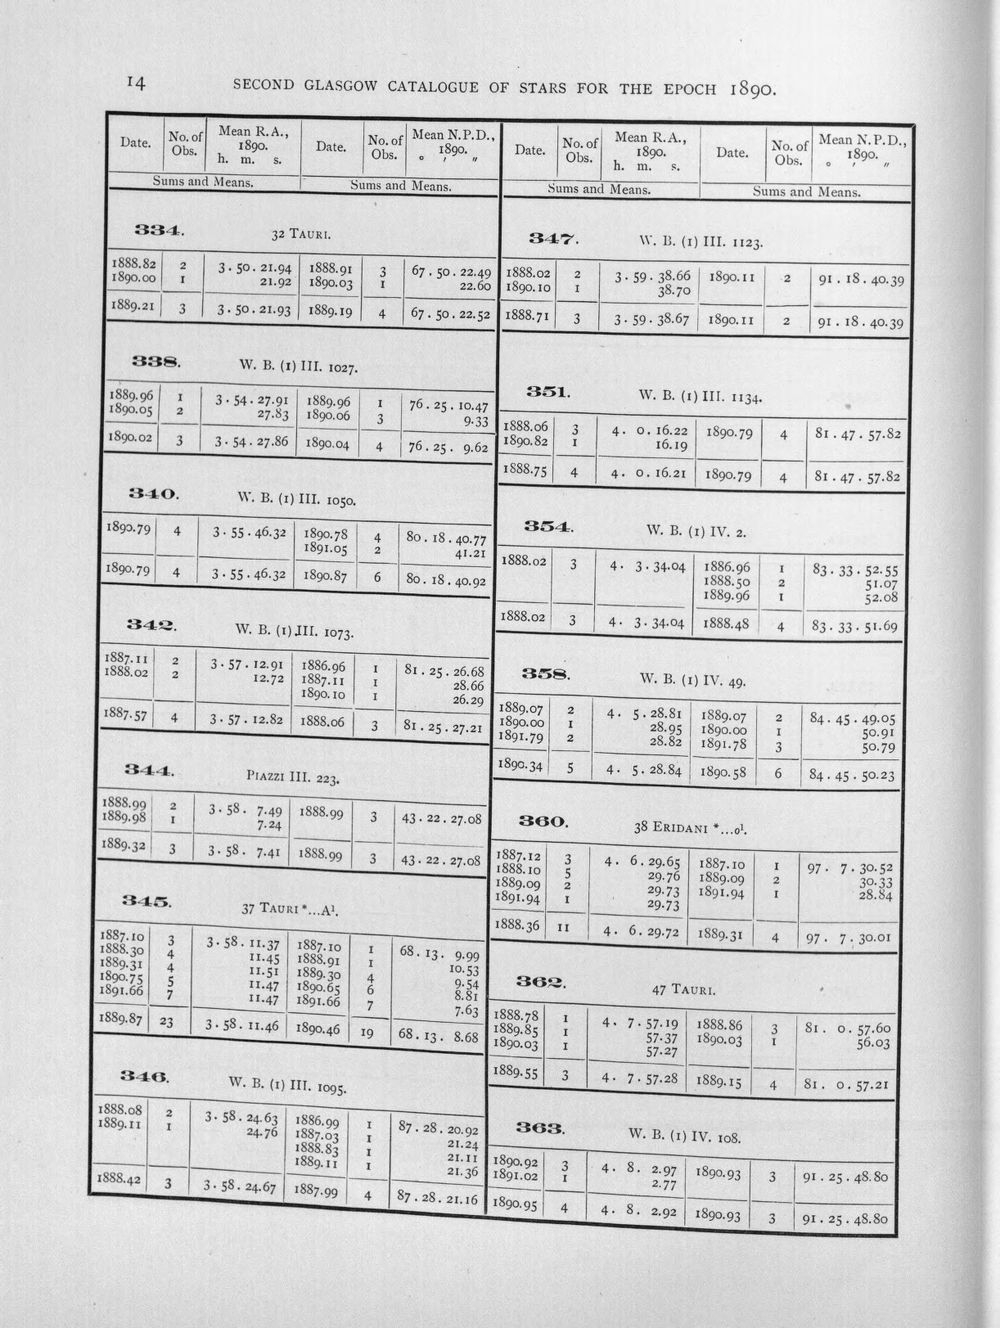 14
SECOND GLASGOW CATALOGUE OF STARS FOR THE EPOCH 1890.
Date. No. of Obs. Mean R.A., 1890. h. m. s. Date. No. of Obs. Mean N.P.D., 1890. ° ′ ″
Sums and Means. Sums and Means.
334. 32 TAURI.
1888.82 2 3 . 50 . 21.94 1888.91 3 67 . 50 . 22.49
1890.00 1 21.92 1890.03 1 22.60
1889.21 3 3 . 50 . 21.93 1889.19 4 67 . 50 . 22.52
338. W. B. (1) III. 1027.
1889.96 1 3 . 54 . 27.91 1889.96 1 76 . 25 . 10.47
1890.05 2 27.83 1890.06 3 9.33
1890.02 3 3 . 54 . 27.86 1890.04 4 76 . 25 . 9.62
340. W. B. (1) III. 1050.
1890.79 4 3 . 55 . 46.32 1890.78 4 80 . 18 . 40.77
1891.05 2 41.21
1890.79 4 3 . 55 . 46.32 1890.87 6 80 . 18 . 40.92
342. W. B. (1) III. 1073.
1887.11 2 3 . 57 . 12.91 1886.96 1 81 . 25 . 26.68
1888.02 2 12.72 1887.11 1 28.66
1890.10 1 26.29
1887.57 4 3 . 57 . 12.82 1888.06 3 81 . 25 . 27.21
344. PIAZZI III. 223.
1888.99 2 3 . 58 . 7.49 1888.99 3 43 . 22 . 27.08
1889.98 1 7.24
1889.32 3 3 . 58 . 7.41 1888.99 3 43 . 22 . 27.08
345. 37 TAURI *...A¹.
1887.10 3 3 . 58 . 11.37 1887.10 1 68 . 13 . 9.99
1888.30 4 11.45 1888.91 1 10.53
1889.31 4 11.51 1889.30 4 9.54
1890.75 5 11.47 1890.65 6 8.81
1891.66 7 11.47 1891.66 7 7.63
1889.87 23 3 . 58 . 11.46 1890.46 19 68 . 13 . 8.68
346. W. B. (1) III. 1095.
1888.08 2 3 . 58 . 24.63 1886.99 1 87 . 28 . 20.92
1889.11 1 24.76 1887.03 1 21.24
1888.83 1 21.11
1889.11 1 21.36
1888.42 3 3 . 58 . 24.67 1887.99 4 87 . 28 . 21.16
Date. No. of Obs. Mean R.A., 1890. h. m. s. Date. No. of Obs. Mean N.P.D., 1890. ° ′ ″
Sums and Means. Sums and Means.
347. W. B. (1) III. 1123.
1888.02 2 3 . 59 . 38.66 1890.11 2 91 . 18 . 40.39
1890.10 1 38.70
1888.71 3 3 . 59 . 38.67 1890.11 2 91 . 18 . 40.39
351. W. B. (1) III. 1134.
1888.06 3 4 . 0 . 16.22 1890.79 4 81 . 47 . 57.82
1890.82 1 16.19
1888.75 4 4 . 0 . 16.21 1890.79 4 81 . 47 . 57.82
354. W. B. (1) IV. 2.
1888.02 3 4 . 3 . 34.04 1886.96 1 83 . 33 . 52.55
1888.50 2 51.07
1889.96 1 52.08
1888.02 3 4 . 3 . 34.04 1888.48 4 83 . 33 . 51.69
358. W. B. (1) IV. 49.
1889.07 2 4 . 5 . 28.81 1889.07 2 84 . 45 . 49.05
1890.00 1 28.95 1890.00 1 50.91
1891.79 2 28.82 1891.78 3 50.79
1890.34 5 4 . 5 . 28.84 1890.58 6 84 . 45 . 50.23
360. 38 ERIDANI *...o¹.
1887.12 3 4 . 6 . 29.65 1887.10 1 97 . 7 . 30.52
1888.10 5 29.76 1889.09 2 30.33
1889.09 2 29.73 1891.94 1 28.84
1891.94 1 29.73
1888.36 11 4 . 6 . 29.72 1889.31 4 97 . 7 . 30.01
362. 47 TAURI.
1888.78 1 4 . 7 . 57.19 1888.86 3 81 . 0 . 57.60
1889.85 1 57.37 1890.03 1 56.03
1890.03 1 57.27
1889.55 3 4 . 7 . 57.28 1889.15 4 81 . 0 . 57.21
363. W. B. (1) IV. 108.
1890.92 3 4 . 8 . 2.97 1890.93 3 91 . 25 . 48.80
1891.02 1 2.77
1890.95 4 4 . 8 . 2.92 1890.93 3 91 . 25 . 48.80